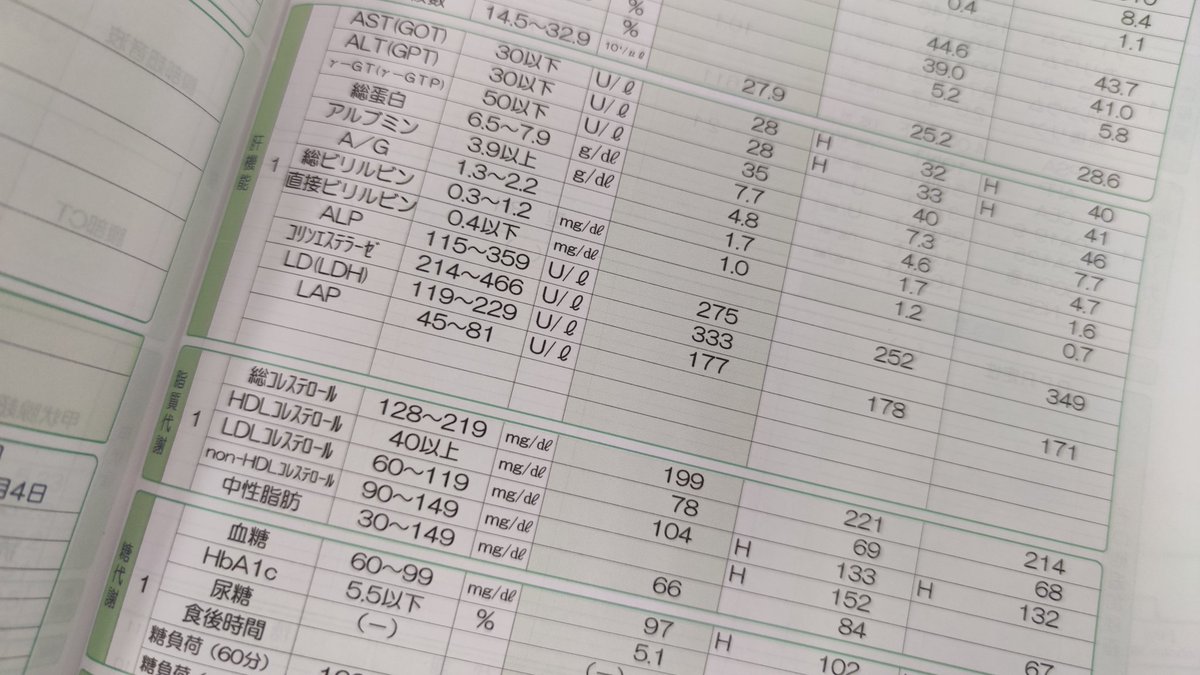 0.4 8.4
% 1.1
% 44.6 43.7
39.0 41.0
5.2 5.8
14.5～32.9 10⁴/μℓ 27.9 25.2 28.6
肝機能 1
AST(GOT) 30以下 U/ℓ 28 H 32 H 40
ALT(GPT) 30以下 U/ℓ 28 H 33 H 41
γ-GT(γ-GTP) 50以下 U/ℓ 35 40 46
総蛋白 6.5～7.9 g/dℓ 7.7 7.3 7.7
アルブミン 3.9以上 g/dℓ 4.8 4.6 4.7
A/G 1.3～2.2 1.7 1.7 1.6
総ビリルビン 0.3～1.2 mg/dℓ 1.0 1.2 0.7
直接ビリルビン 0.4以下 mg/dℓ
ALP 115～359 U/ℓ 275 252 349
ｺﾘﾝｴｽﾃﾗｰｾﾞ 214～466 U/ℓ 333
LD(LDH) 119～229 U/ℓ 177 178 171
LAP 45～81 U/ℓ
脂質代謝 1
総ｺﾚｽﾃﾛｰﾙ 128～219 mg/dℓ 199 221 214
HDLｺﾚｽﾃﾛｰﾙ 40以上 mg/dℓ 78 69 68
LDLｺﾚｽﾃﾛｰﾙ 60～119 mg/dℓ 104 H 133 H 132
non-HDLｺﾚｽﾃﾛｰﾙ 90～149 mg/dℓ H 152
中性脂肪 30～149 mg/dℓ 66 84 67
糖代謝 1
血糖 60～99 mg/dℓ 97 H 102
HbA1c 5.5以下 % 5.1
尿糖 (－) (－)
食後時間
糖負荷 (60分)
糖負荷
月4日